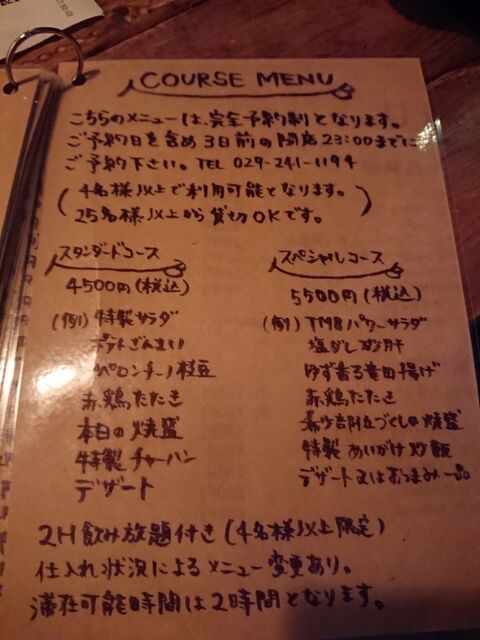 COURSE MENU
こちらのメニューは、完全予約制となります。
ご予約日を含め3日前の閉店23:00までに
ご予約下さい。TEL 029-241-1194
(4名様以上で利用可能となります。
25名様以上から貸切OKです。)
スタンダードコース
4500円(税込)
(例) 特製サラダ
ポテトざんまい
ペペロンチーノ枝豆
赤鶏たたき
本日の焼盛
特製チャーハン
デザート
スペシャルコース
5500円(税込)
(例) TMBパワーサラダ
塩ダレ砂肝
ゆず香る竜田揚げ
赤鶏たたき
希少部位づくしの焼盛
特製あいがけ炒飯
デザート又はおつまみ一品
2H飲み放題付き(4名様以上限定)
仕入れ状況によるメニュー変更あり。
滞在可能時間は2時間となります。